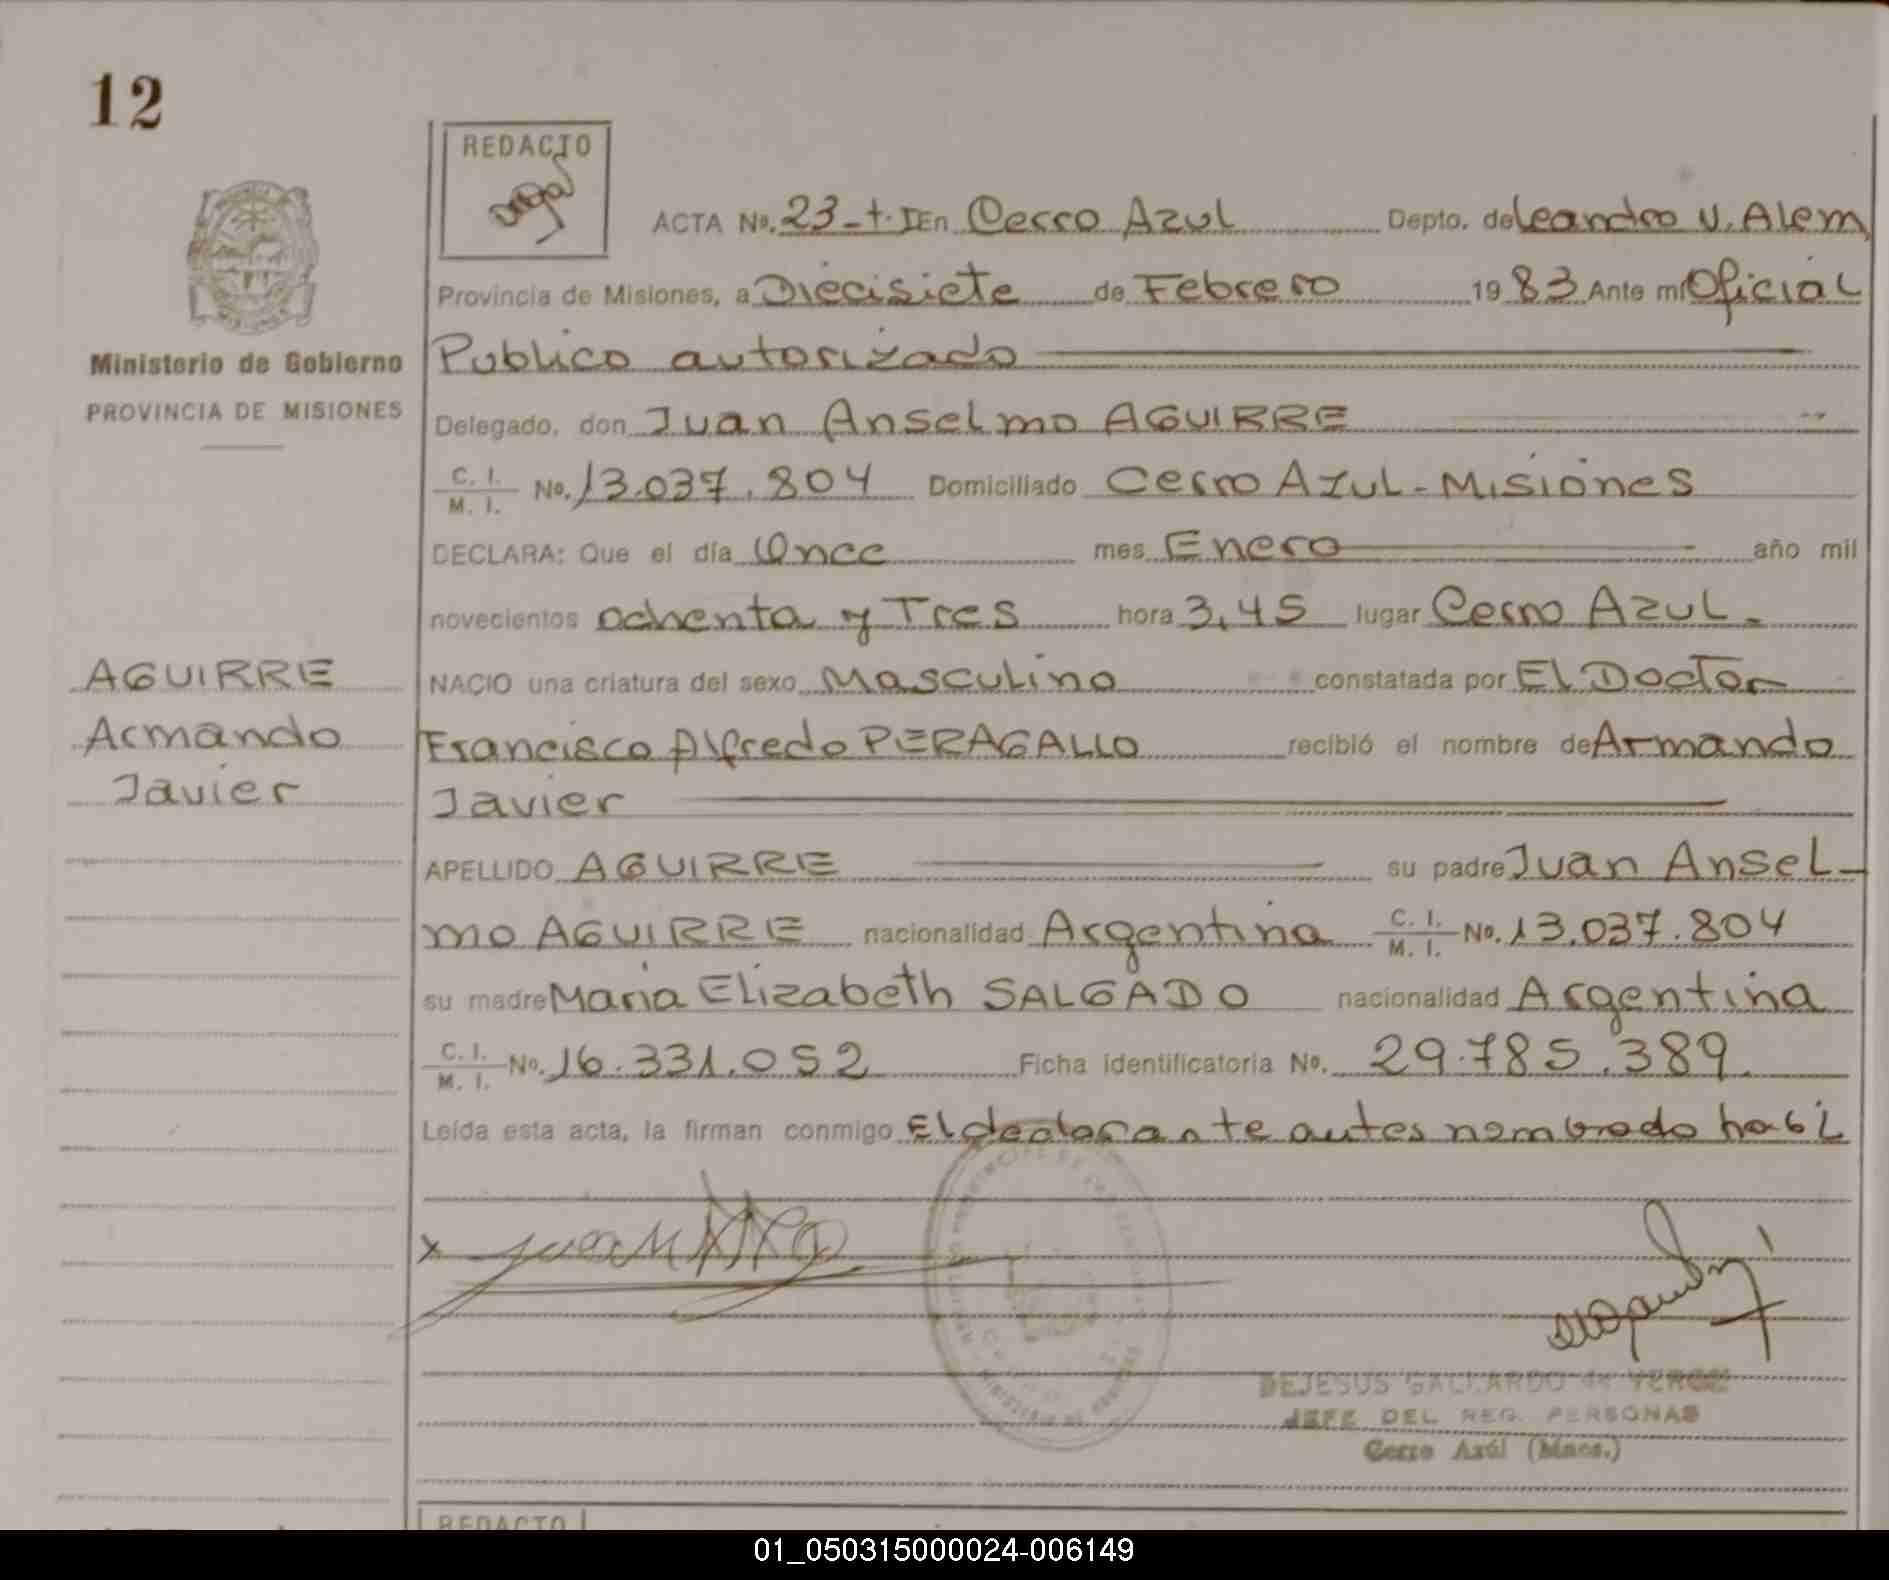 12
REDACTO
ACTA No. 23-t.I En Cerro Azul Depto. de Leandro N. Alem
Provincia de Misiones, a Diecisiete de Febrero 1983 Ante mi Oficial
Publico autorizado
Ministerio de Gobierno
PROVINCIA DE MISIONES
Delegado, don Juan Anselmo AGUIRRE
C. I. / M. I. No. 13.037.804 Domiciliado Cerro Azul - Misiones
DECLARA: Que el día Once mes Enero año mil
novecientos ochenta y Tres hora 3,45 lugar Cerro Azul.
AGUIRRE
Armando
Javier
NACIO una criatura del sexo Masculino constatada por El Doctor
Francisco Alfredo PERAGALLO recibió el nombre de Armando
Javier
APELLIDO AGUIRRE su padre Juan Ansel-
mo AGUIRRE nacionalidad Argentina C. I. / M. I. No. 13.037.804
su madre Maria Elizabeth SALGADO nacionalidad Argentina
C. I. / M. I. No. 16.331.052 Ficha identificatoria No. 29.785.389
Leída esta acta, la firman conmigo El declarante antes nombrado habil
DEJESUS GALLARDO de
JEFE DEL REG. PERSONAS
Cerro Azúl (Mnes.)
REDACTO
01_050315000024-006149